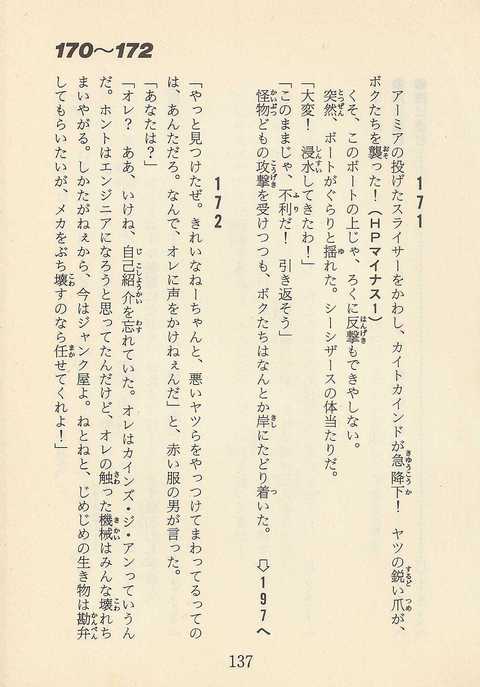 170〜172
171
アーミアの投げたスライサーをかわし、カイトカインドが急降下！　ヤツの鋭い爪が、
ボクたちを襲った！（HPマイナス1）
くそ、このボートの上じゃ、ろくに反撃もできやしない。
突然、ボートがぐらりと揺れた。シーシザースの体当たりだ。
「大変！　浸水してきたわ！」
「このままじゃ、不利だ！　引き返そう」
怪物どもの攻撃を受けつつも、ボクたちはなんとか岸にたどり着いた。　⇨197へ
172
「やっと見つけたぜ。きれいなねーちゃんと、悪いヤツらをやっつけてまわってるっての
は、あんただろ。なんで、オレに声をかけねぇんだ」と、赤い服の男が言った。
「あなたは？」
「オレ？　ああ、いけね、自己紹介を忘れていた。オレはカインズ・ジ・アンっていうん
だ。ホントはエンジニアになろうと思ってたんだけど、オレの触った機械はみんな壊れち
まいやがる。しかたがねぇから、今はジャンク屋よ。ねとねと、じめじめの生き物は勘弁
してもらいたいが、メカをぶち壊すのなら任せてくれよ！」
137